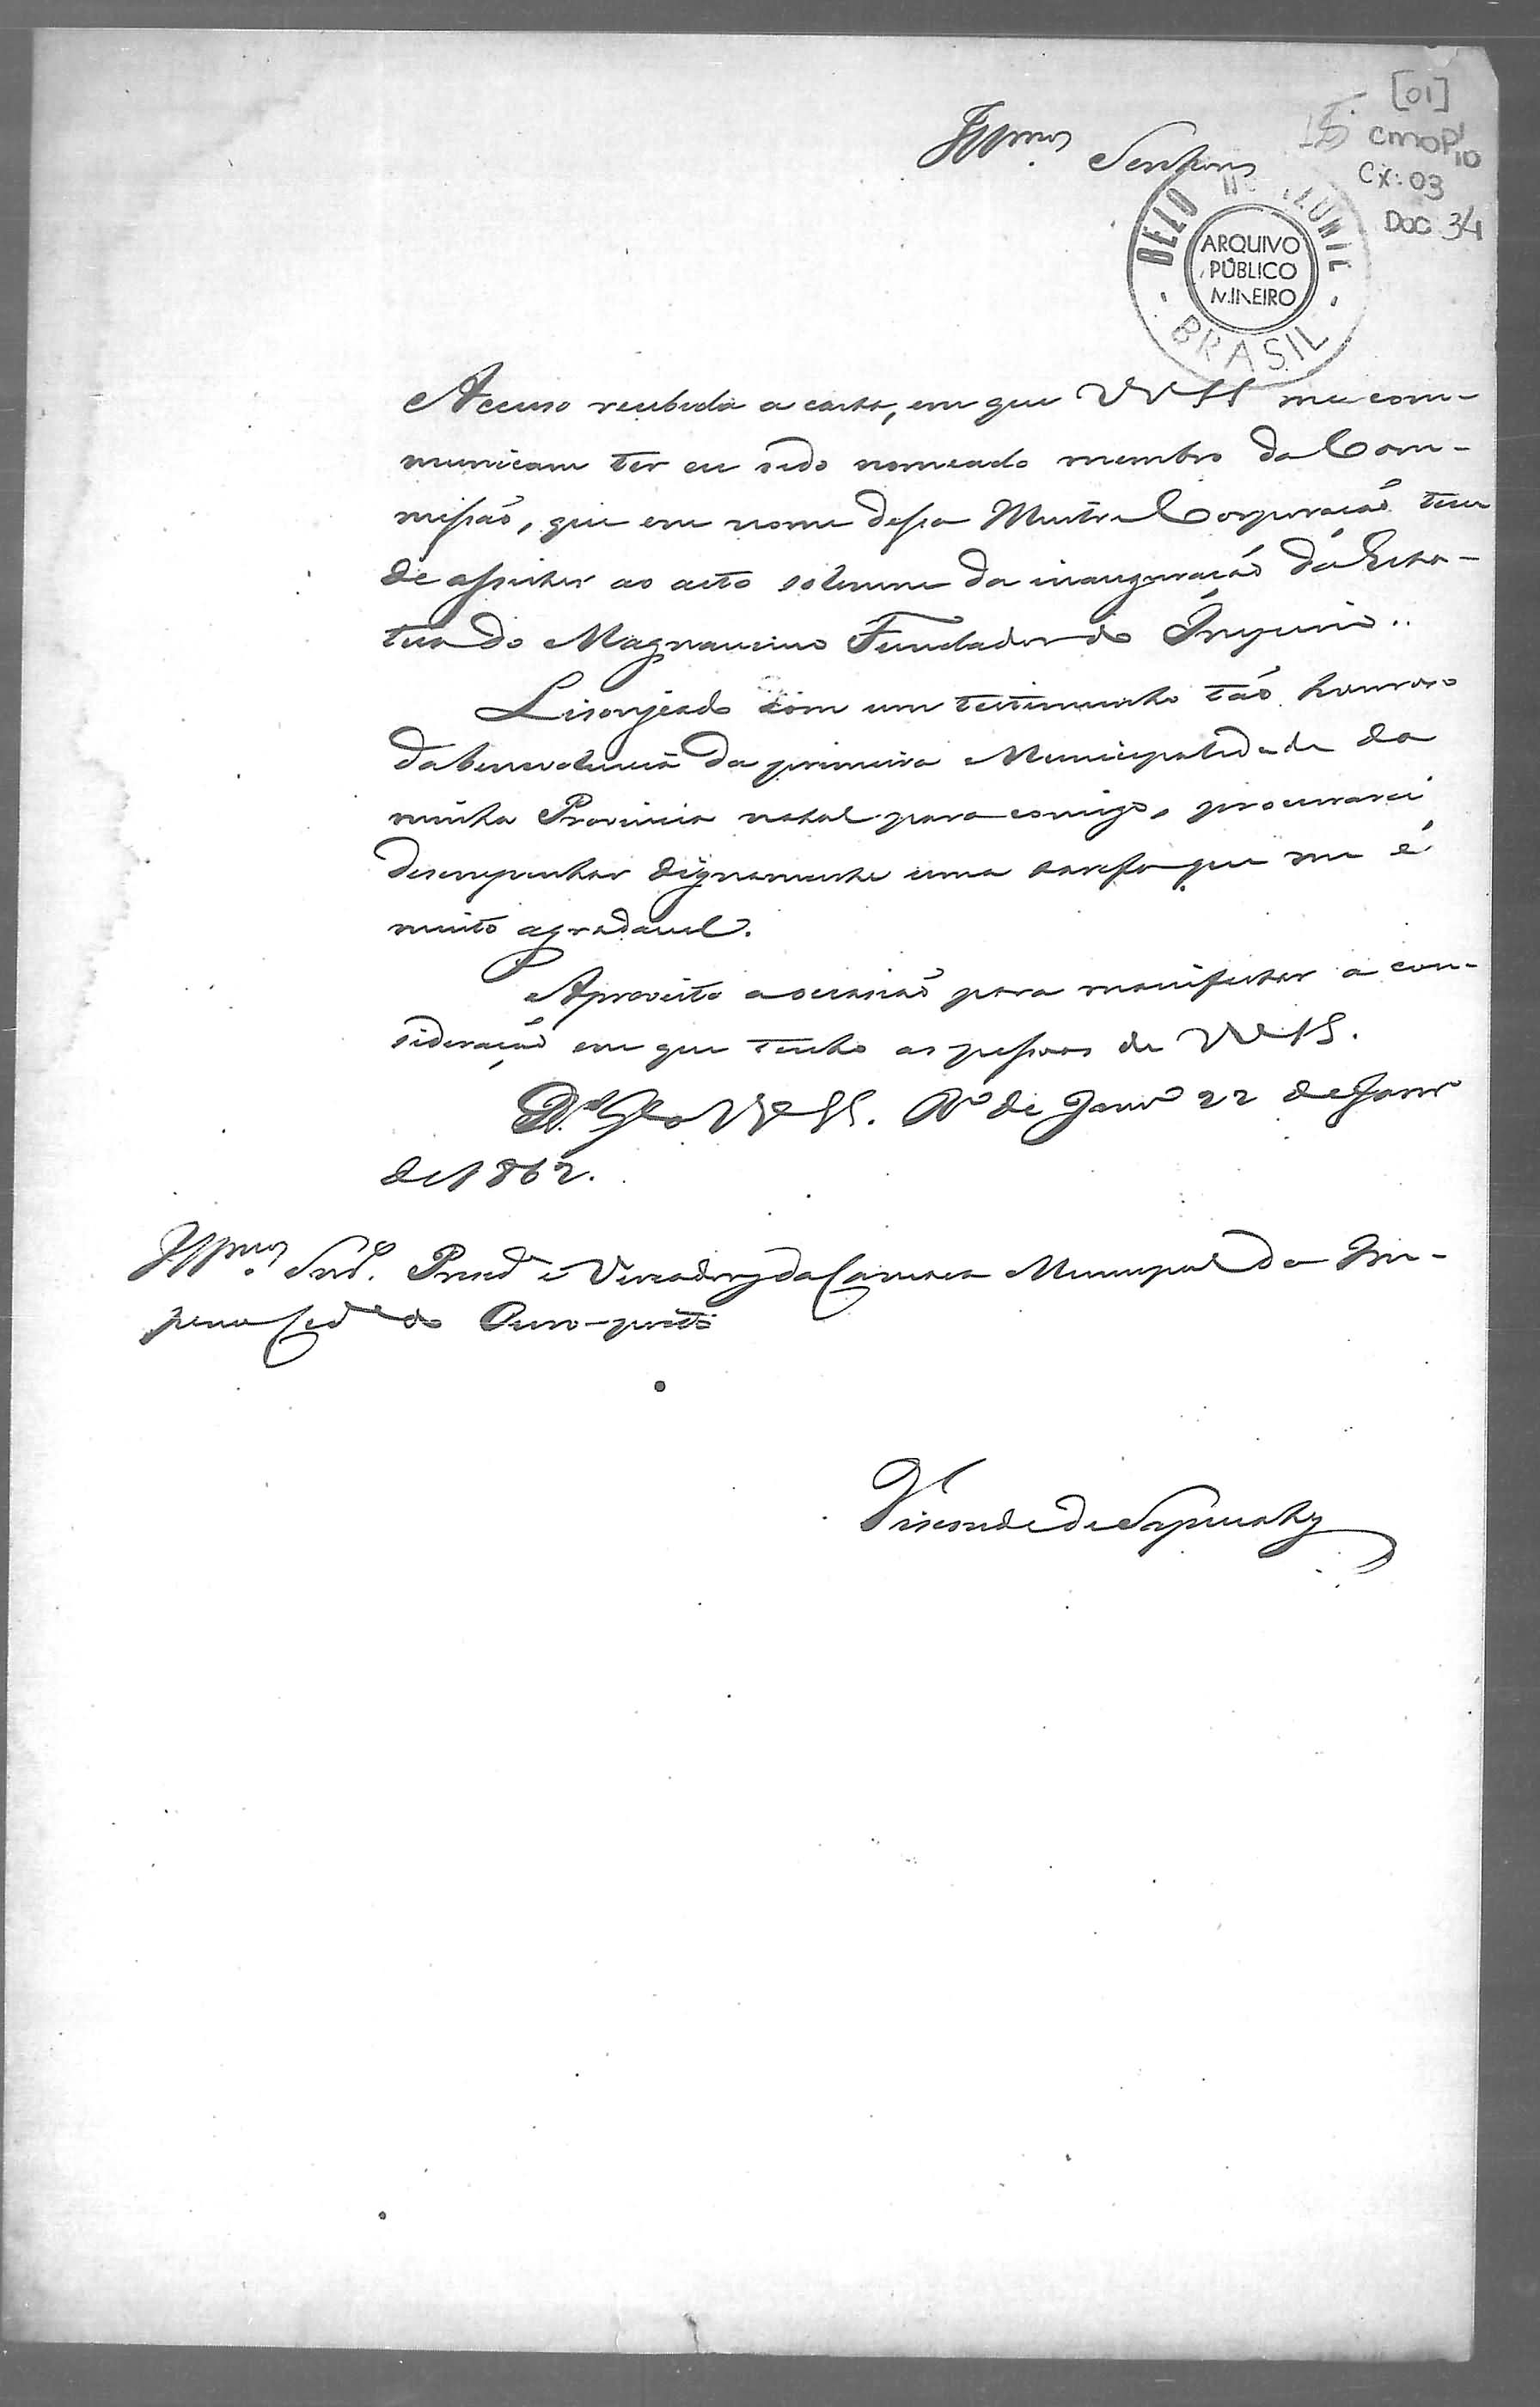 [01]
CMOP 1/10
Cx: 03
Doc 34
Illmos Senhores
BELO
ARQUIVO
PÚBLICO
MINEIRO
BRASIL
Accuso recebida a carta, em que VV SS me com-
municam ter eu sido nomeado membro da Com-
missão, que em nome dessa Illustre Corporação tem
de assistir ao acto solemne da inauguração da Esta-
tua do Magnanimo Fundador do Imperio.
Lisonjeado com um testimunho tão honroso
da benevolencia da primeira Municipalidade da
minha Provincia natal para comigo, procurarei
desempenhar dignamente uma tarefa que me é
muito agradavel.
Aproveito a occasião para manifestar a con-
sideração em que tenho as pessoas de VV SS.
Ds Gde a VV SS. Ro de Janro 22 de Janro
de 1862.
Illmos Snrs. Presde e Vereadores da Camara Municipal da Im-
perial Cide do Ouro-preto
Visconde de Sapucahy